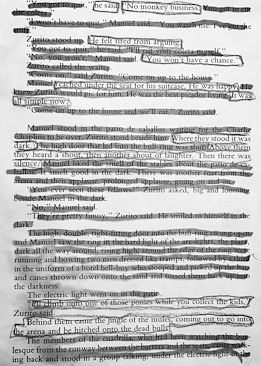 he said "No monkey business
"I won't have to quit," Manuel said. "You watch me. I've got the
Zurito stood up. He felt tired from arguing.
"You got to quit," he said. "I'll cut your coleta myself."
"No, you won't," Manuel said. "You won't have a chance."
Zurito called the waiter.
"Come on," said Zurito. "Come on up to the house."
Manuel reached under the seat for his suitcase. He was happy. He
Zurito would pic for him. He was the best picador living. It was
all simple now.
"Come on up to the house and we'll eat," Zurito said.
Manuel stood in the patio de caballos waiting for the Charlie
Chaplins to be over. Zurito stood beside him. Where they stood it was
dark. The high door that led into the bull-ring was shut. Above them
they heard a shout, then another shout of laughter. Then there was
silence. Manuel liked the smell of the stables about the patio de
It smelt good in the dark. There was another roar from the
arena and then applause, prolonged applause, going on and on.
"You ever seen these fellows?" Zurito asked, big and looming
beside Manuel in the dark.
"No," Manuel said.
"They're pretty funny," Zurito said. He smiled to himself in the
dark.
The high, double, tight-fitting door into the bull-ring swung
and Manuel saw the ring in the hard light of the arc-lights, the
dark all the way around, rising high; around the edge of the ring were
running and bowing two men dressed like tramps, followed by
in the uniform of a hotel bell-boy who stooped and picked up the
and canes thrown down onto the sand and tossed them back up
the darkness.
The electric light went on in the patio.
"I'll climb onto one of those ponies while you collect the kids,"
Zurito said.
Behind them came the jingle of the mules, coming out to go into
the arena and be hitched onto the dead bull.
The members of the cuadrilla, who had been watching the
lesque from the runway between the barrera and the seats, came
ing back and stood in a group talking, under the electric light in the